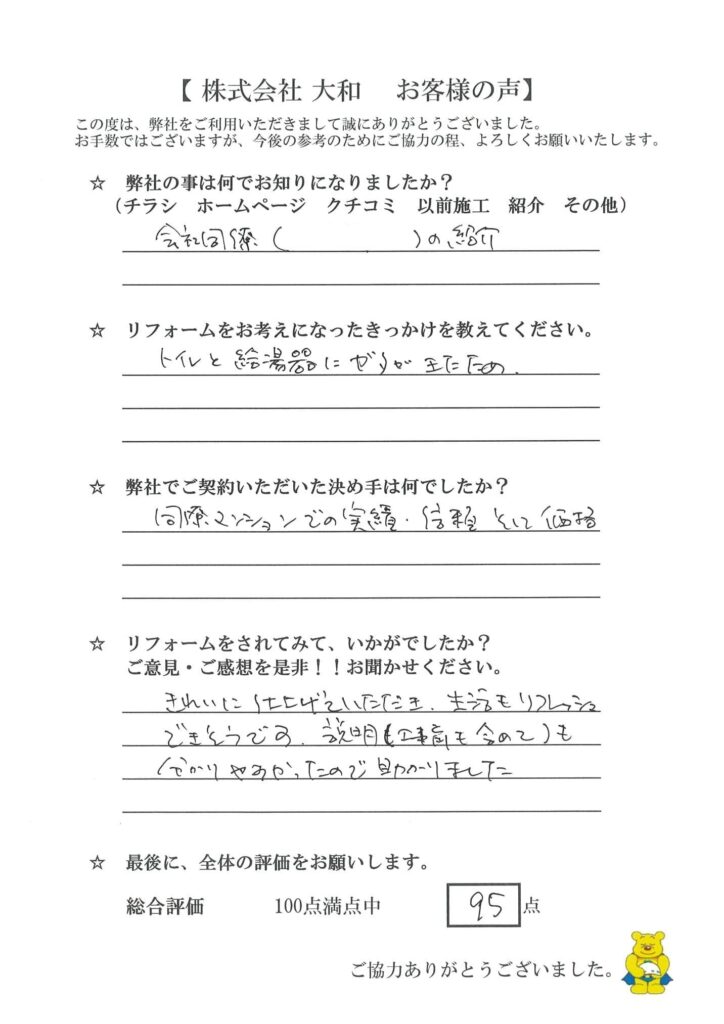 【 株式会社 大和　お客様の声】
この度は、弊社をご利用いただきまして誠にありがとうございました。
お手数ではございますが、今後の参考のためにご協力の程、よろしくお願いいたします。
☆　弊社の事は何でお知りになりましたか？
（チラシ　ホームページ　クチコミ　以前施工　紹介　その他）
会社同僚（　　　）の紹介
☆　リフォームをお考えになったきっかけを教えてください。
トイレと給湯器にガタが来たため.
☆　弊社でご契約いただいた決め手は何でしたか？
同マンションでの実績・信頼 そして価格
☆　リフォームをされてみて、いかがでしたか？
ご意見・ご感想を是非！！お聞かせください。
きれいに仕上げていただき、生活もリフレッシュ
できそうです。説明（工事前も含めて）も
分かりやすかったので助かりました
☆　最後に、全体の評価をお願いします。
総合評価　100点満点中　95点
ご協力ありがとうございました。